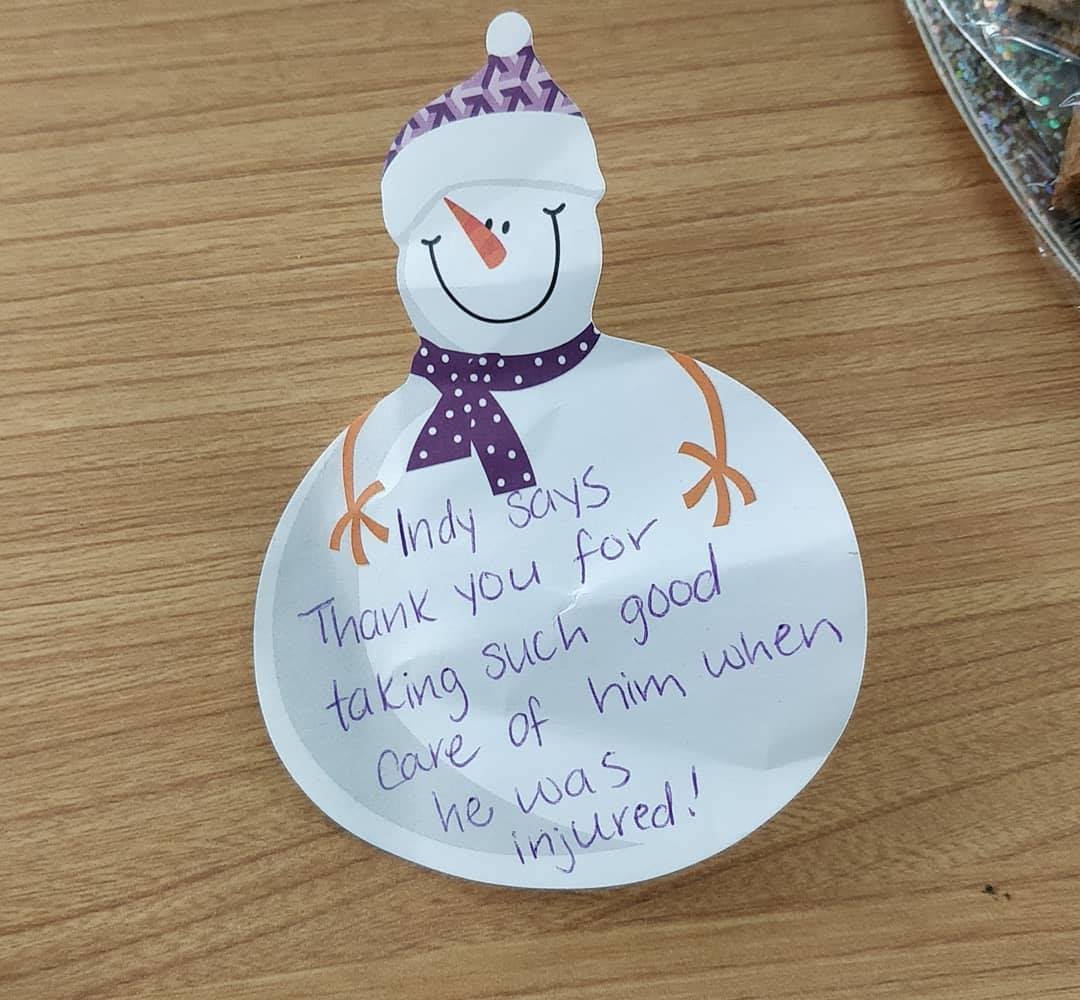 Indy says
Thank you for
taking such good
care of him when
he was
injured!